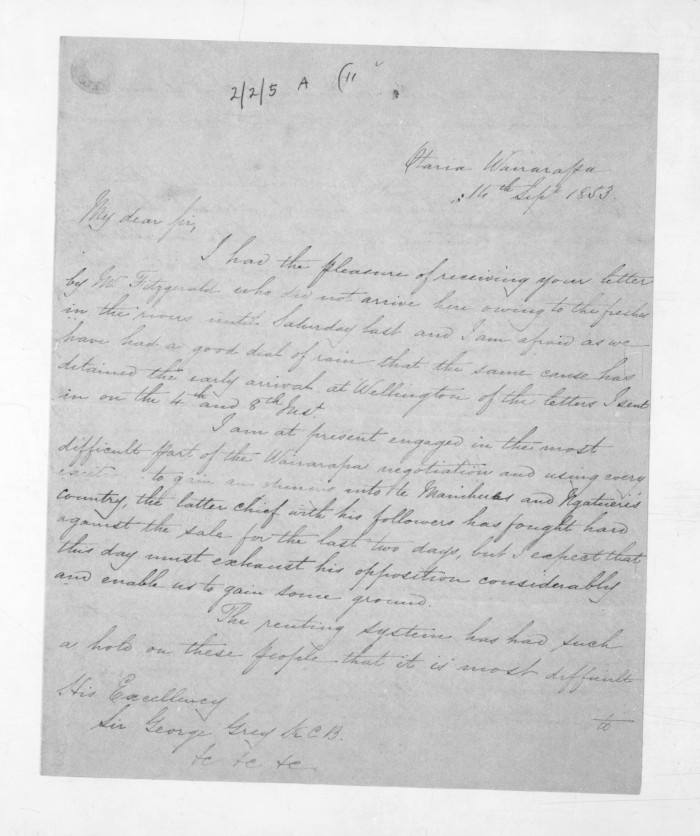 2/2/5 A (11
Otaria Wairarapa
14th Sept 1853.
My dear Sir,
I had the pleasure of receiving your letter
by Mr Fitzgerald who did not arrive here owing to the freshes
in the rivers until Saturday last and I am afraid as we
have had a good deal of rain that the same cause has
detained the early arrival at Wellington of the letters I sent
in on the 4th and 8th Inst.
I am at present engaged in the most
difficult part of the Wairarapa negotiation and using every
to gain an into the Manihera's and Ngatuere's
country, the latter chief with his followers has fought hard
against the sale for the last two days, but I expect that
this day must exhaust his opposition considerably
and enable us to gain some ground.
The renting system has had such
a hold on these people that it is most difficult
to
His Excellency
Sir George Grey K.C.B.
&c &c &c